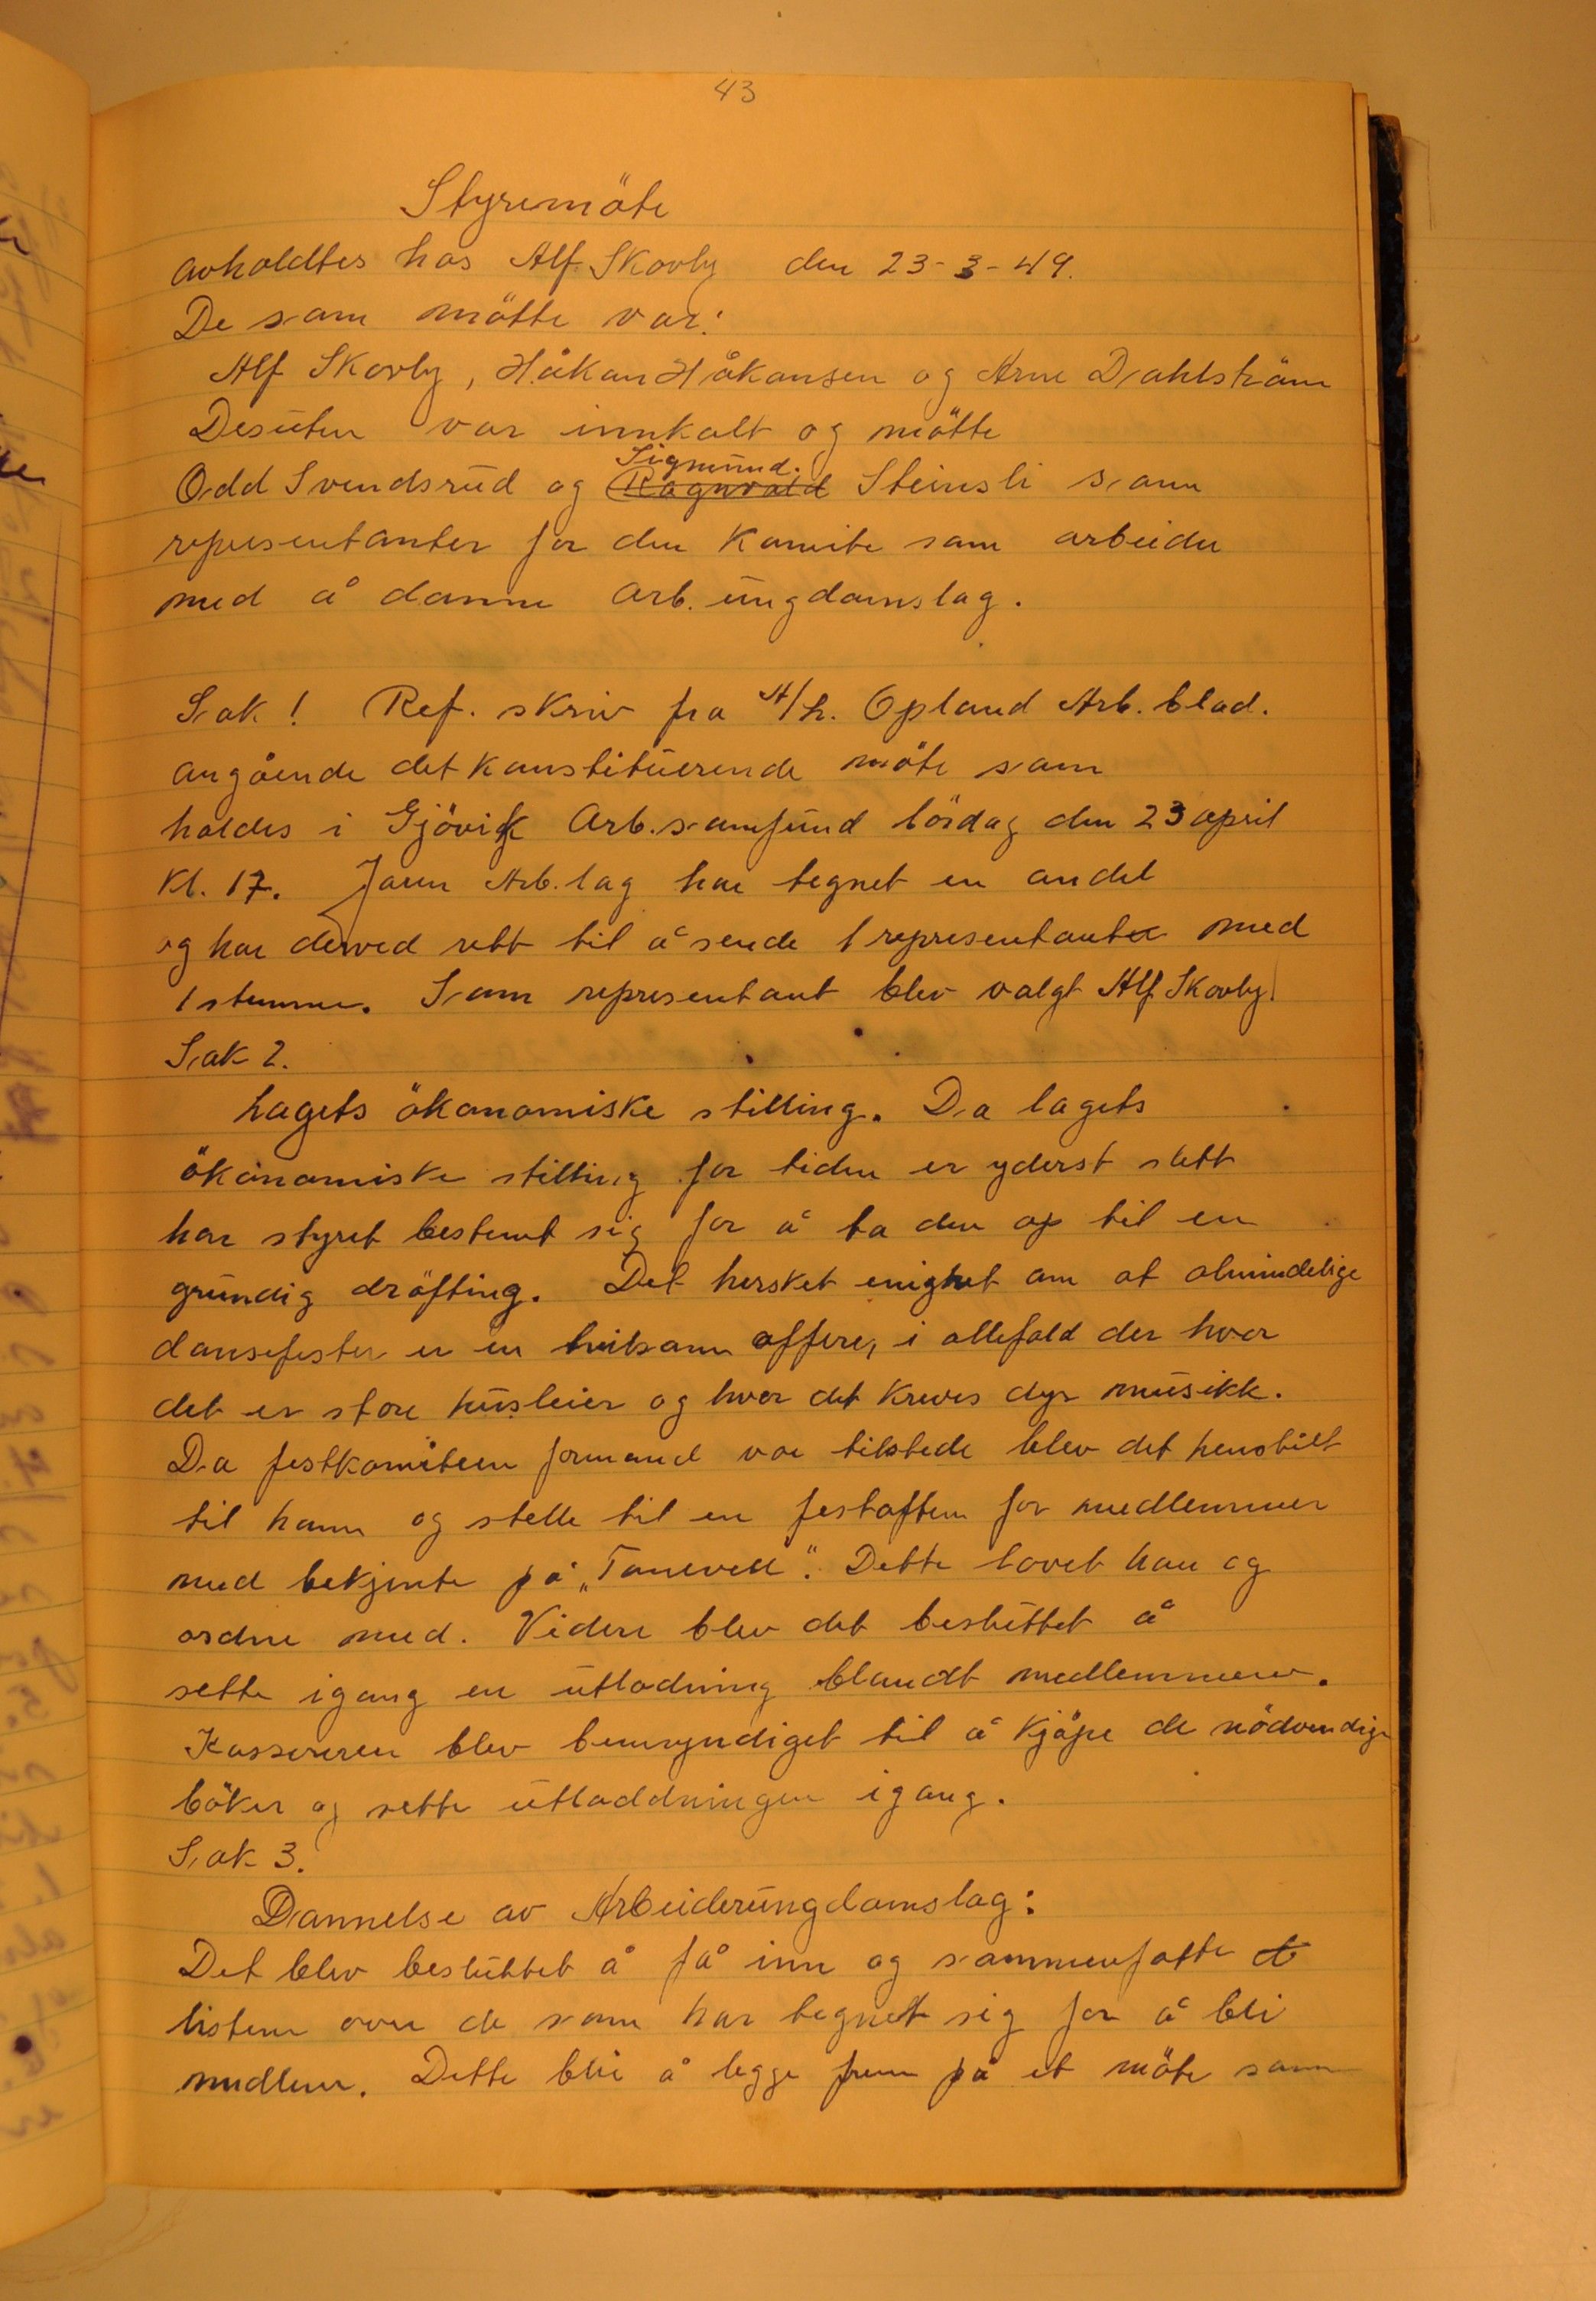 43
Styremöte
avholdtes hos Alf Skovly den 23-3-49.
De som mötte var:
Alf Skovly, Håkon Håkonsen og Arne Dahlström
Desuten var innkalt og mötte
Sigmund.
Odd Svendsrud og Ragnvald Steinsli som
representanter for den komite som arbeider
med å danne Arb. ungdomslag.
Sak 1 Ref. skriv fra A/L. Opland Arb. blad.
angående det konstituerende möte som
holdes i Gjövik Arb. samfund lördag den 23 april
Kl. 17. Jaren Arb. lag har tegnet en andel
og har derved rett til å sende 1 representanter med
1 stemme. Som representant blev valgt Alf Skovly.
Sak 2.
Lagets ökonomiske stilling. Da lagets
ökonomiske stilling for tiden er yderst slett
har styret bestemt sig for å ta den op til en
grundig dröfting. Det hersket enighet om at almindelige
dansefester er en tvilsom affere, i allefald der hvor
det er store husleier og hvor det kreves dyr musikk.
Da festkomiteen formand var tilstede blev det henstilt
til ham og stelle til en festaften for medlemmer
med bekjente på „Tanevell". Dette lovet han og
ordne med. Videre blev det besluttet å
sette igang en utlodning blandt medlemmene.
Kassereren blev bemyndiget til å kjöpe de nödvendige
böker og sette utloddningen igang.
Sak 3.
Dannelse av Arbeiderungdomslag:
Det blev besluttet å få inn og sammenfatte
listene over de som har tegnet sig for å bli
medlem. Dette blir å legge frem på et möte som